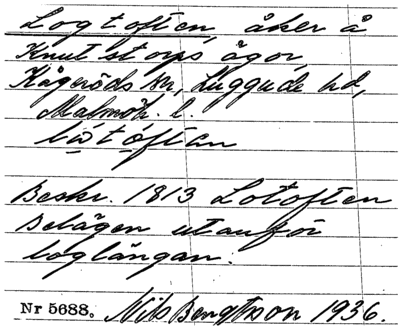 Logtoften, åker å
Knutstorps ägor,
Kågeröds sn, Luggude hd,
Malmöh. l.
Beskr. 1813 Lotoften
Belägen utanför
loglängan.
Nr 5688. Nils Bengtsson 1936.